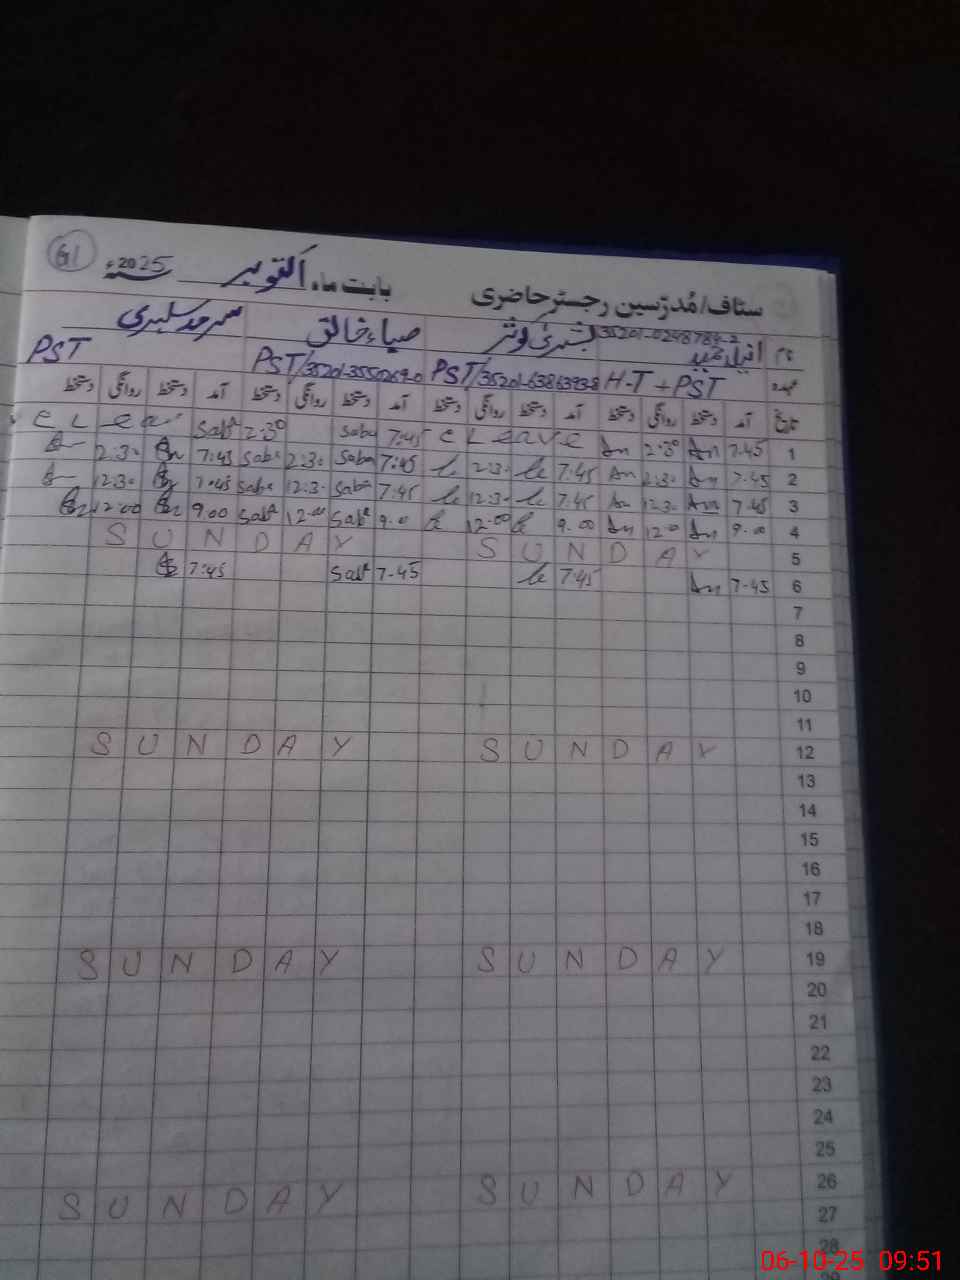 61
سٹاف/مُدرّسین رجسٹر حاضری بابت ماہ اکتوبر 2025ء
نام 35201-0248784-2 بشریٰ کوثر ضیاء خالق
عہدہ H-T + PST PST/35201-6386393-8 PST/35201-3550269-0 PST
تاریخ آمد دستخط روانگی دستخط آمد دستخط روانگی دستخط آمد دستخط روانگی دستخط آمد دستخط روانگی دستخط
1 7.45 An 2:30 An C Leave 7:45 Saba 2:30 Saba C Leave
2 7.45 An 2:30 An 7:45 2:30 7:45 Saba 2:30 Saba 7:45 2:30
3 7.45 An 12:30 An 7:45 12:30 7:45 Saba 12:30 Saba 7:45 12:30
4 9.00 An 12:00 An 9.00 12:00 9.00 Saba 12:00 Saba 9.00 12:00
5 SUNDAY SUNDAY
6 7.45 An 7:45 7.45 Saba 7:45
7
8
9
10
11
12 SUNDAY SUNDAY
13
14
15
16
17
18
19 SUNDAY SUNDAY
20
21
22
23
24
25
26 SUNDAY SUNDAY
27
28
06-10-25 09:51